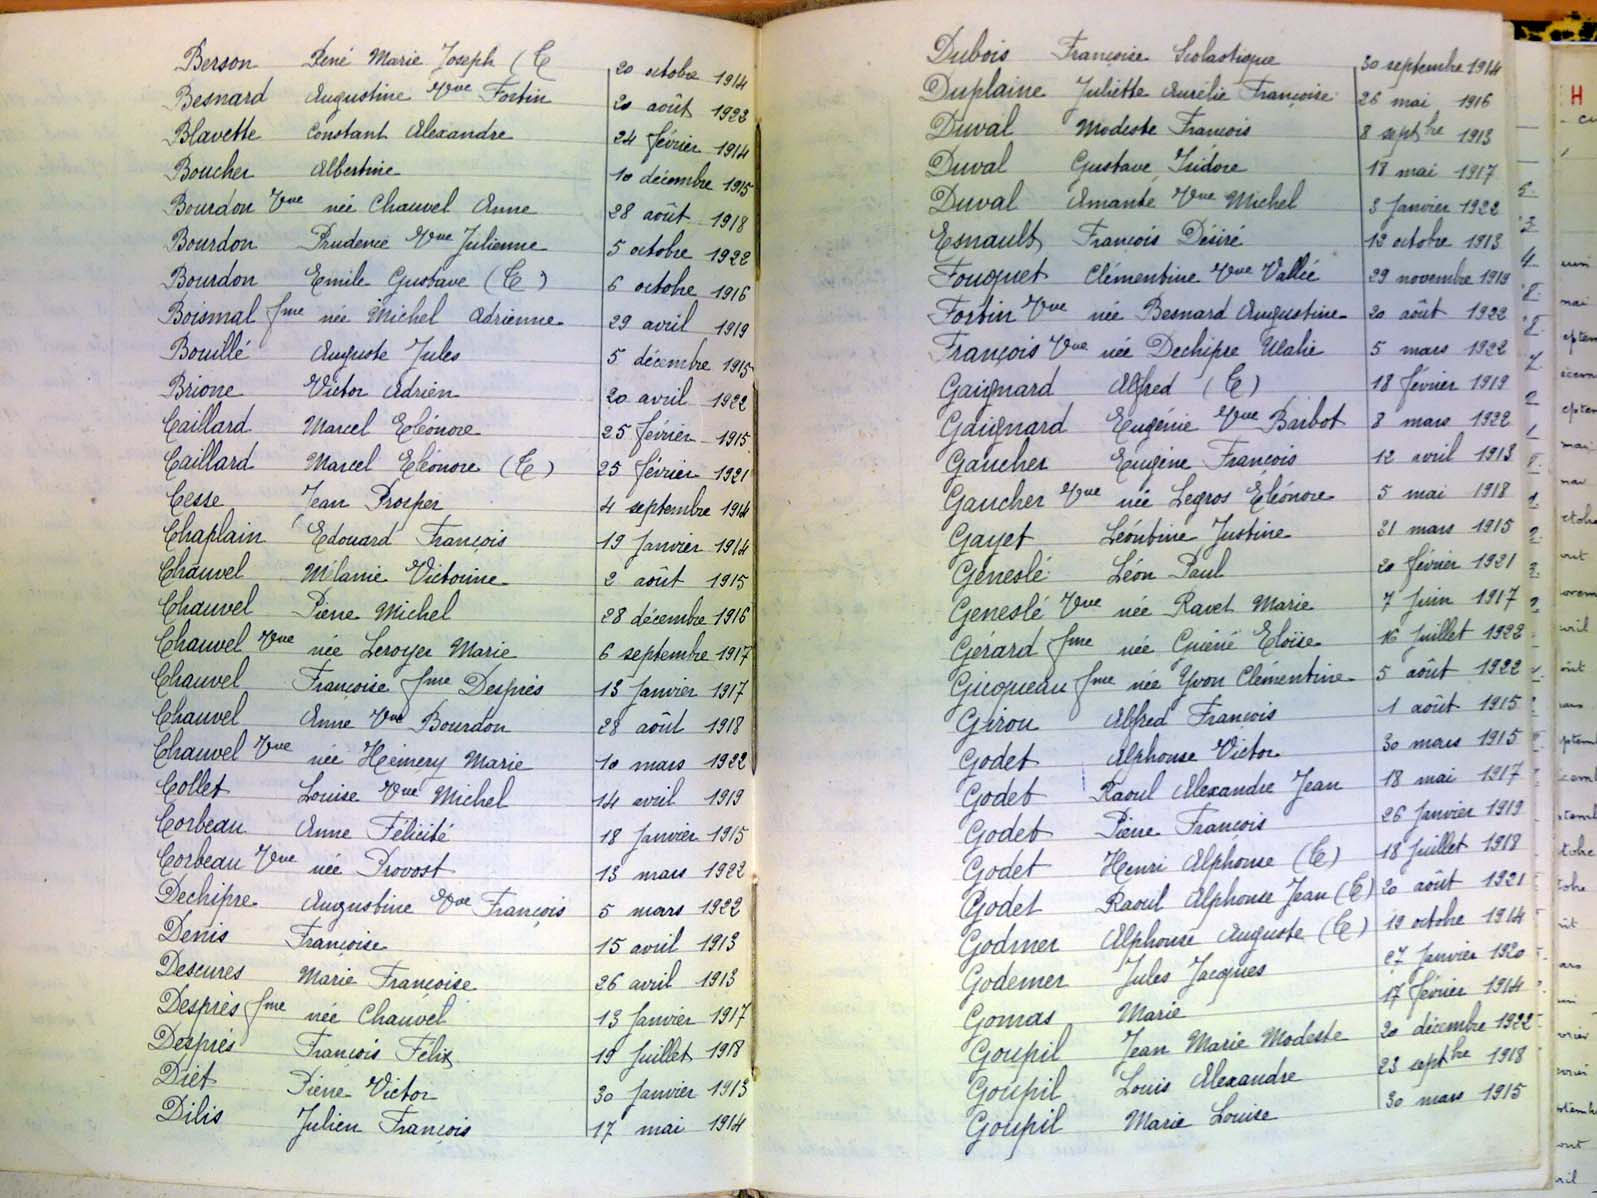 Berson René Marie Joseph (C 20 octobre 1914
Besnard Augustine Vve Fortin 20 août 1922
Blavette Constant Alexandre 24 février 1914
Boucher Albertine 10 décembre 1915
Bourdon Vve née Chauvel Anne 28 août 1918
Bourdon Prudence Vve Julienne 5 octobre 1922
Bourdon Emile Gustave (C) 6 octobre 1916
Boismal fme née Michel Adrienne 29 avril 1919
Bouillé Auguste Jules 5 décembre 1915
Brione Victor Adrien 20 avril 1922
Caillard Marcel Eléonore 25 février 1915
Caillard Marcel Eléonore (C) 25 février 1921
Cesse Jean Prosper 4 septembre 1914
Chaplain Edouard François 19 Janvier 1914
Chauvel Mélanie Victorine 2 août 1915
Chauvel Pierre Michel 28 décembre 1916
Chauvel Vve née Leroyer Marie 6 septembre 1917
Chauvel Françoise fme Desprès 13 Janvier 1917
Chauvel Anne Vve Bourdon 28 août 1918
Chauvel Vve née Hémery Marie 10 mars 1922
Collet Louise Vve Michel 14 avril 1919
Corbeau Anne Félicité 18 Janvier 1915
Corbeau Vve née Provost 13 mars 1922
Dechipre Augustine Vve François 5 mars 1922
Denis Françoise 15 avril 1913
Descures Marie Françoise 26 avril 1913
Desprès fme née Chauvel 13 Janvier 1917
Desprès François Félix 19 Juillet 1918
Diet Pierre Victor 30 Janvier 1913
Dilis Julien François 17 mai 1914
Dubois Françoise Scolastique 30 septembre 1914
Duplaine Juliette Aurélie Françoise 26 mai 1916
Duval Modeste François 8 septbre 1913
Duval Gustave Isidore 18 mai 1917
Duval Amante Vve Michel 3 Janvier 1922
Esnault François Désiré 12 octobre 1913
Fouquet Clémentine Vve Vallée 29 novembre 1919
Fortin Vve née Besnard Augustine 20 août 1922
François Vve née Dechipre 5 mars 1922
Gaignard Alfred (C) 18 février 1919
Gaignard Eugénie Vve Barbot 8 mars 1922
Gaucher Eugène François 12 avril 1913
Gaucher Vve née Legros Eléonore 5 mai 1918
Gayet Léontine Justine 31 mars 1915
Geneslé Léon Paul 20 février 1921
Geneslé Vve née Ravet Marie 7 Juin 1917
Gérard fme née Eloïse 16 Juillet 1922
Gicqueau fme née Yvon Clémentine 5 août 1922
Girou Alfred François 1 août 1915
Godet Alphonse Victor 30 mars 1915
Godet Raoul Alexandre Jean 18 mai 1917
Godet Pierre François 26 Janvier 1919
Godet Henri Alphonse (C) 18 Juillet 1918
Godet Raoul Alphonse Jean (C) 20 août 1921
Godmer Alphonse Auguste (C) 19 octobre 1914
Godemer Jules Jacques 27 Janvier 1920
Gomas Marie 17 février 1914
Goupil Jean Marie Modeste 20 décembre 1922
Goupil Louis Alexandre 23 septbre 1918
Goupil Marie Louise 30 mars 1915
H